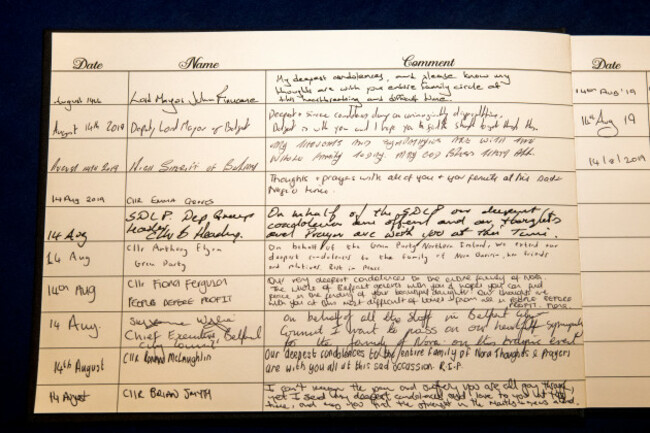 Date Name Comment Date
My deepest condolences, and please know my
thoughts are with your entire family circle at
August 14th Lord Mayor John Finucane this heartbreaking and difficult time.
14th Aug '19
Deepest + sincere condolences
August 14th 2019 Deputy Lord Mayor of Belfast Belfast is with you and I hope you
14th Aug 19
My thoughts and sympathies are with the
August 14th 2019 High Sheriff of Belfast whole family today. May God bless them all.
14/8/2019
Thoughts + prayers with all of you + your family at this
14 Aug 2019 Cllr Emma Groves time.
SDLP. Dep Group On behalf of the SDLP our deepest
14 Aug Leader condolences are offered and our thoughts
and Prayers are with you at this Time.
14 Aug Cllr Anthony Flynn On behalf of the Green Party Northern Ireland, we extend our
Green Party deepest condolences to the family of Nora Quoirin, her friends
and relatives. Rest in Peace
14th Aug Cllr Fiona Ferguson Our very deepest condolences to the entire family of Nora.
PEOPLE BEFORE PROFIT The whole of Belfast grieves with you
peace in the of your beautiful daughter. Our thoughts are
with you at this most difficult of times from all in PEOPLE BEFORE
PROFIT.
14 Aug. Suzanne Wylie On behalf of all the staff in Belfast City
Chief Executive Belfast Council I want to pass on our heartfelt sympathy
City Council for the family of Nora on this tragic event
14th August Cllr Ronan McLaughlin Our deepest condolences to the entire family of Nora Thoughts & Prayers
are with you all at this sad occassion. R.I.P.
14 August Cllr BRIAN SMYTH I can't imagine the pain and you are all going through,
yet I send my deepest condolences and love to you at this
time, and may you find the strength in the